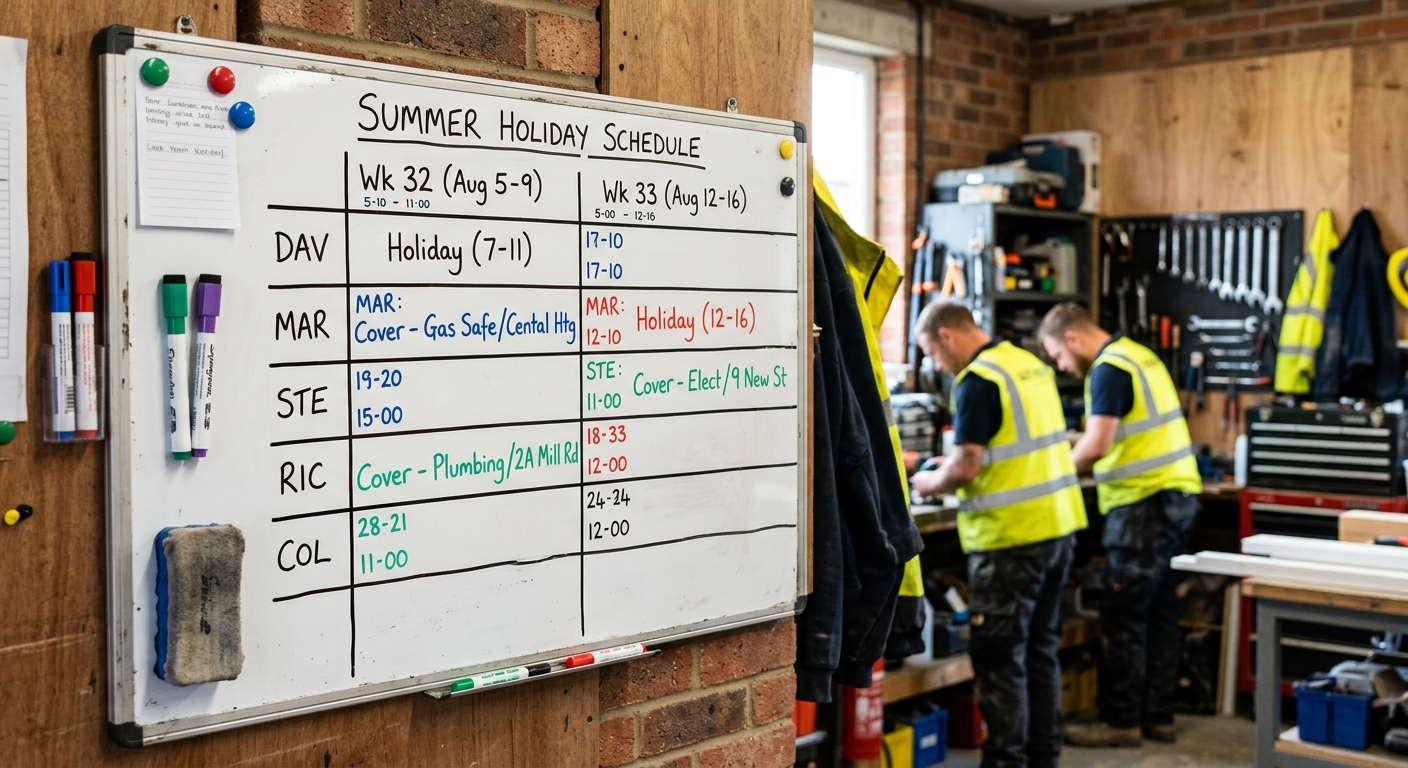 SUMMER HOLIDAY SCHEDULE
Wk 32 (Aug 5-9)
5-10 - 11:00
Wk 33 (Aug 12-16)
5-00 - 12-16
DAV
Holiday (7-11)
17-10
17-10
MAR
MAR:
Cover - Gas Safe/Cental Htg
MAR:
12-10
Holiday (12-16)
STE
19-20
15-00
STE:
11-00
Cover - Elect/9 New St
RIC
Cover - Plumbing/2A Mill Rd
18-33
12-00
COL
28-21
11-00
24-34
12-00